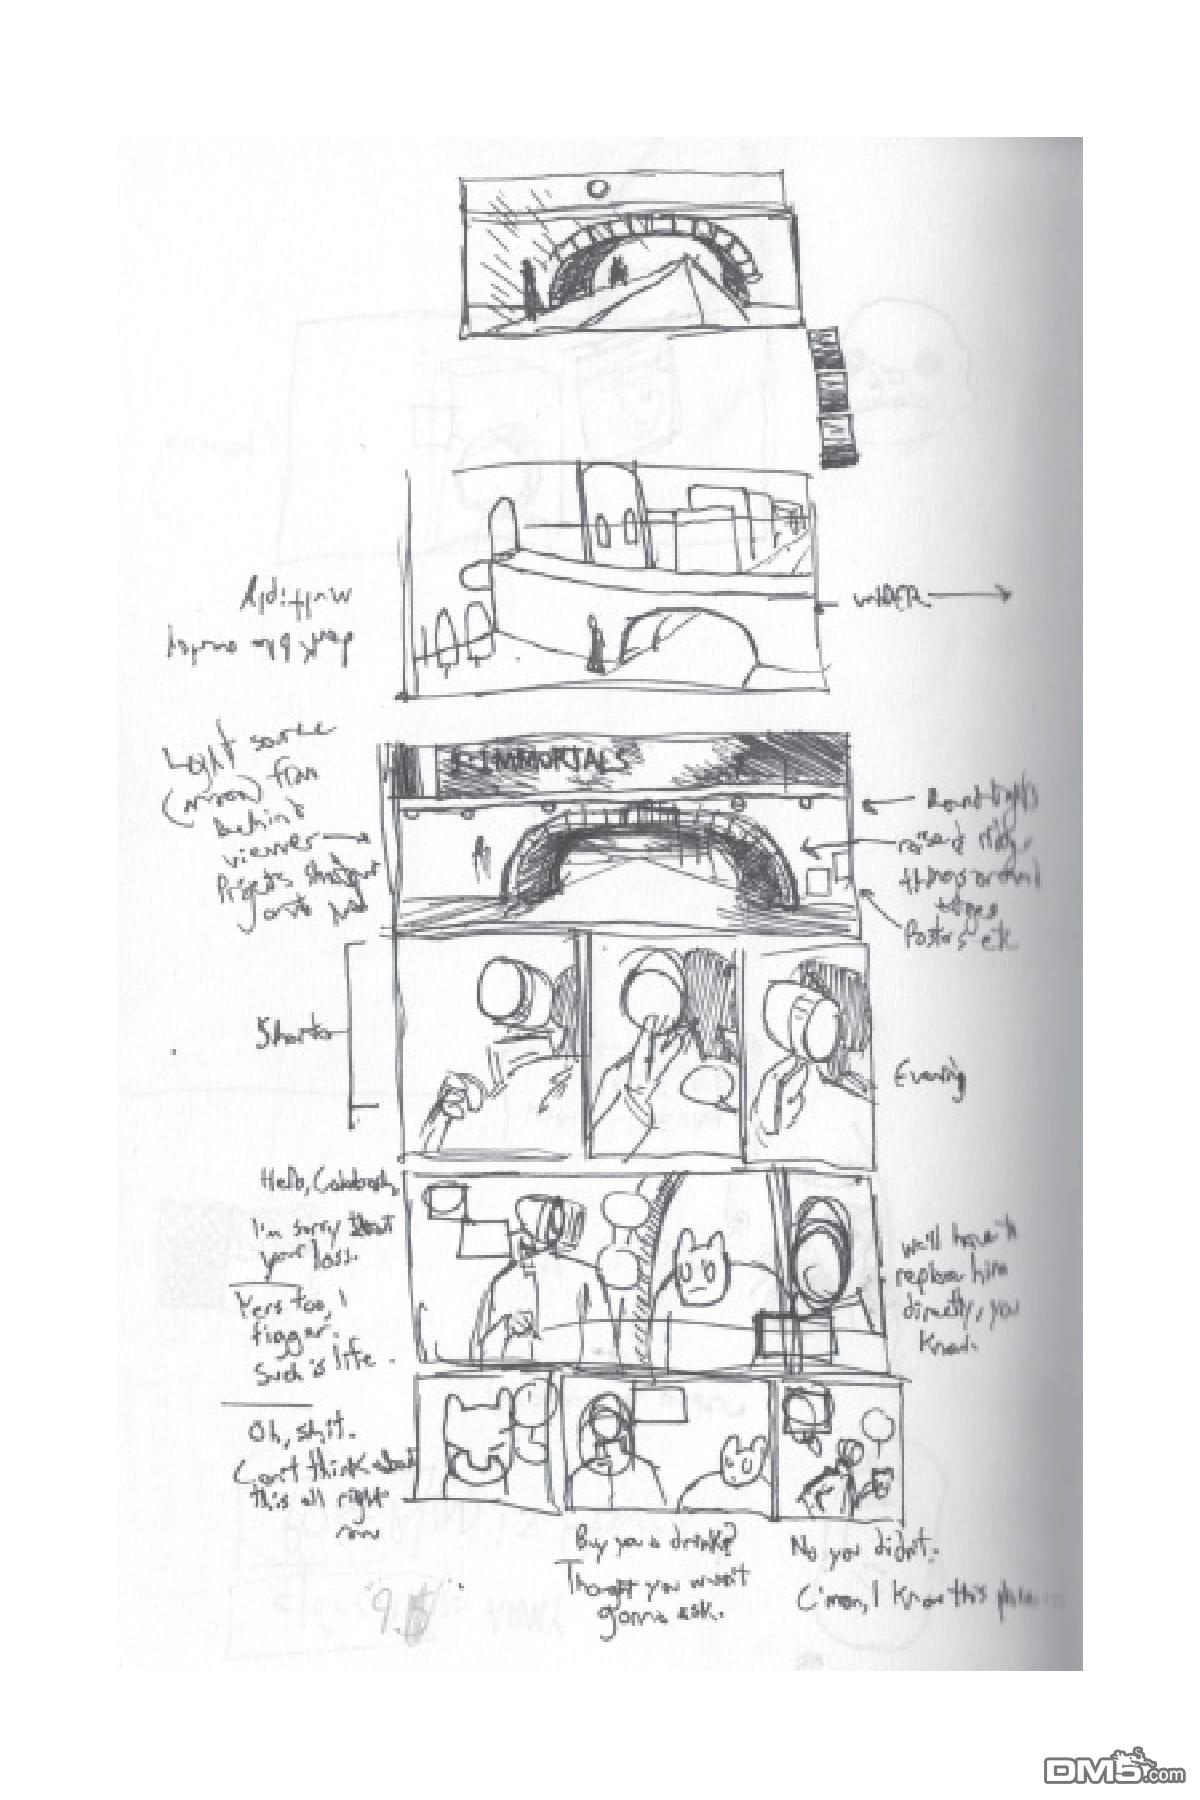 multiply
WIDER
IMMORTALS
Light source
(moon) from
behind
viewer
onto
Round lights
raised
Posters etc
Shorter
Evening
Hello, Calabash,
I'm sorry about
your loss.
Yers too, I
figger.
Such is life.
We'll have to
replace him
directly, you
know.
Oh, shit.
Can't think about
this all right
now
Buy you a drink?
Thought you wasn't
gonna ask.
No you didn't.
C'mon, I know this
DM5.com